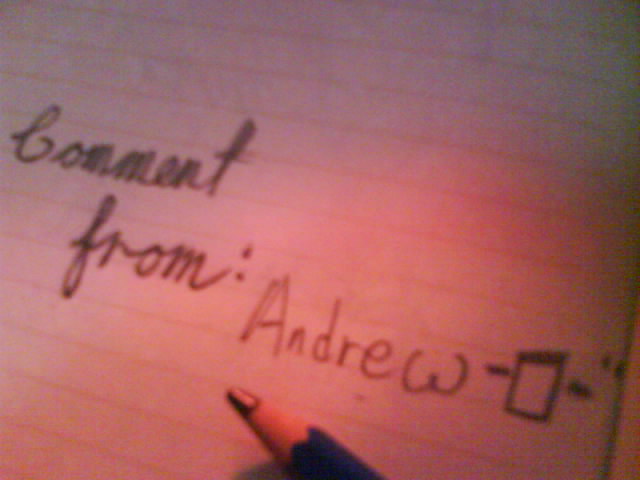 Comment
from:
Andrew